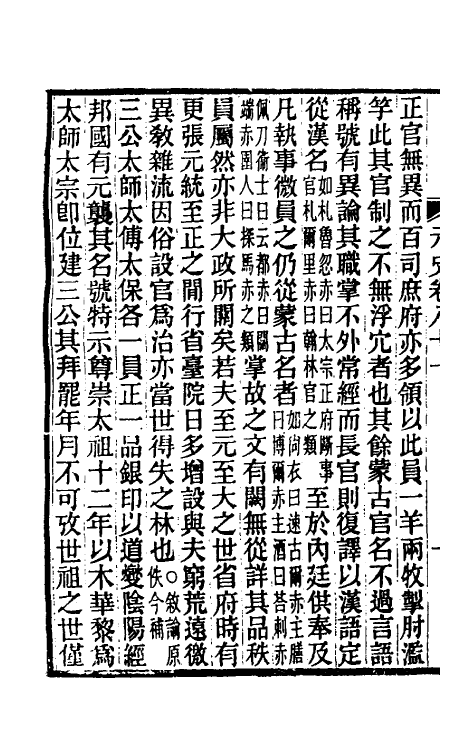 元史卷八十一
正官無異而百司庶府亦多領以此員一羊兩牧掣肘濫
竽此其官制之不無浮冗者也其餘蒙古官名不過言語
稱號有異論其職掌不外常經而長官則復譯以漢語定
從漢名如札魯忽赤曰太宗正府斷事官札爾里赤曰翰林官之類至於內廷供奉及
凡執事微員之仍從蒙古名者如尙衣曰速古爾赤主膳曰博爾赤主酒曰荅剌赤
佩刀衞士曰云都赤曰闊端赤圉人曰探馬赤之類掌故之文有闕無從詳其品秩
員屬然亦非大政所關矣若夫至元至大之世省府時有
更張元統至正之間行省臺院日多增設與夫窮荒遠徼
異敎雜流因俗設官爲治亦當世得失之林也○敘論原佚今補
三公太師太傅太保各一員正一品銀印以道變陰陽經
邦國有元襲其名號特示尊崇太祖十二年以木華黎爲
太師太宗卽位建三公其拜罷年月不可攷世祖之世僅